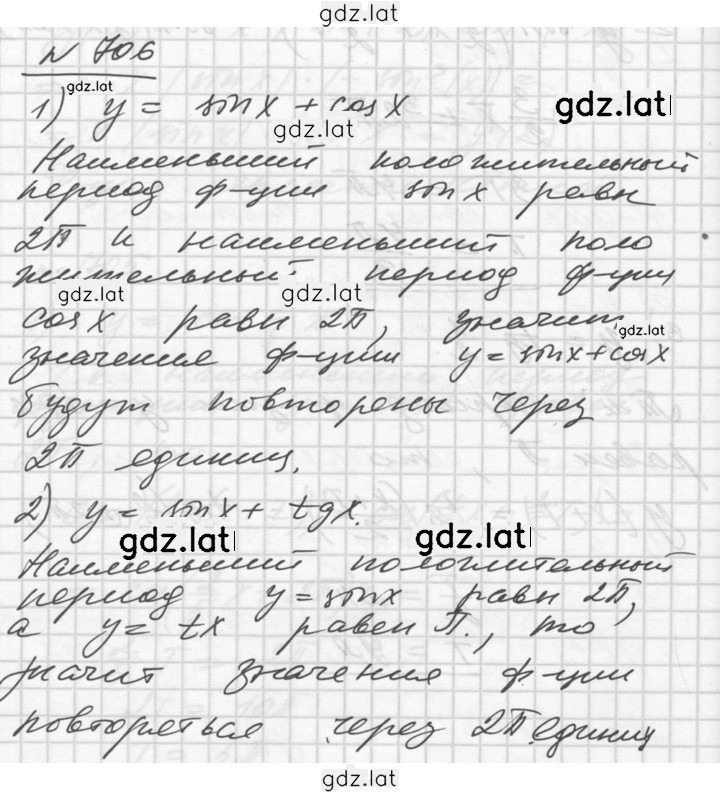 gdz.lat
N 706
gdz.lat
1) y = sin x + cos x
gdz.lat
gdz.lat
Наименьший положительный
период ф-ции sin x равн
2П и наименьший поло
жительный период ф-ции
gdz.lat
gdz.lat
cos x равн 2П, значит,
gdz.lat
значения ф-ции y = sin x + cos x
будут повторены через
2П единиц.
2) y = sin x + tg x.
gdz.lat
gdz.lat
Наименьший положительный
период y = sin x равн 2П,
а y = tx равен П., то
значит значения ф-ции
повторяеться через 2П единиц
gdz.lat